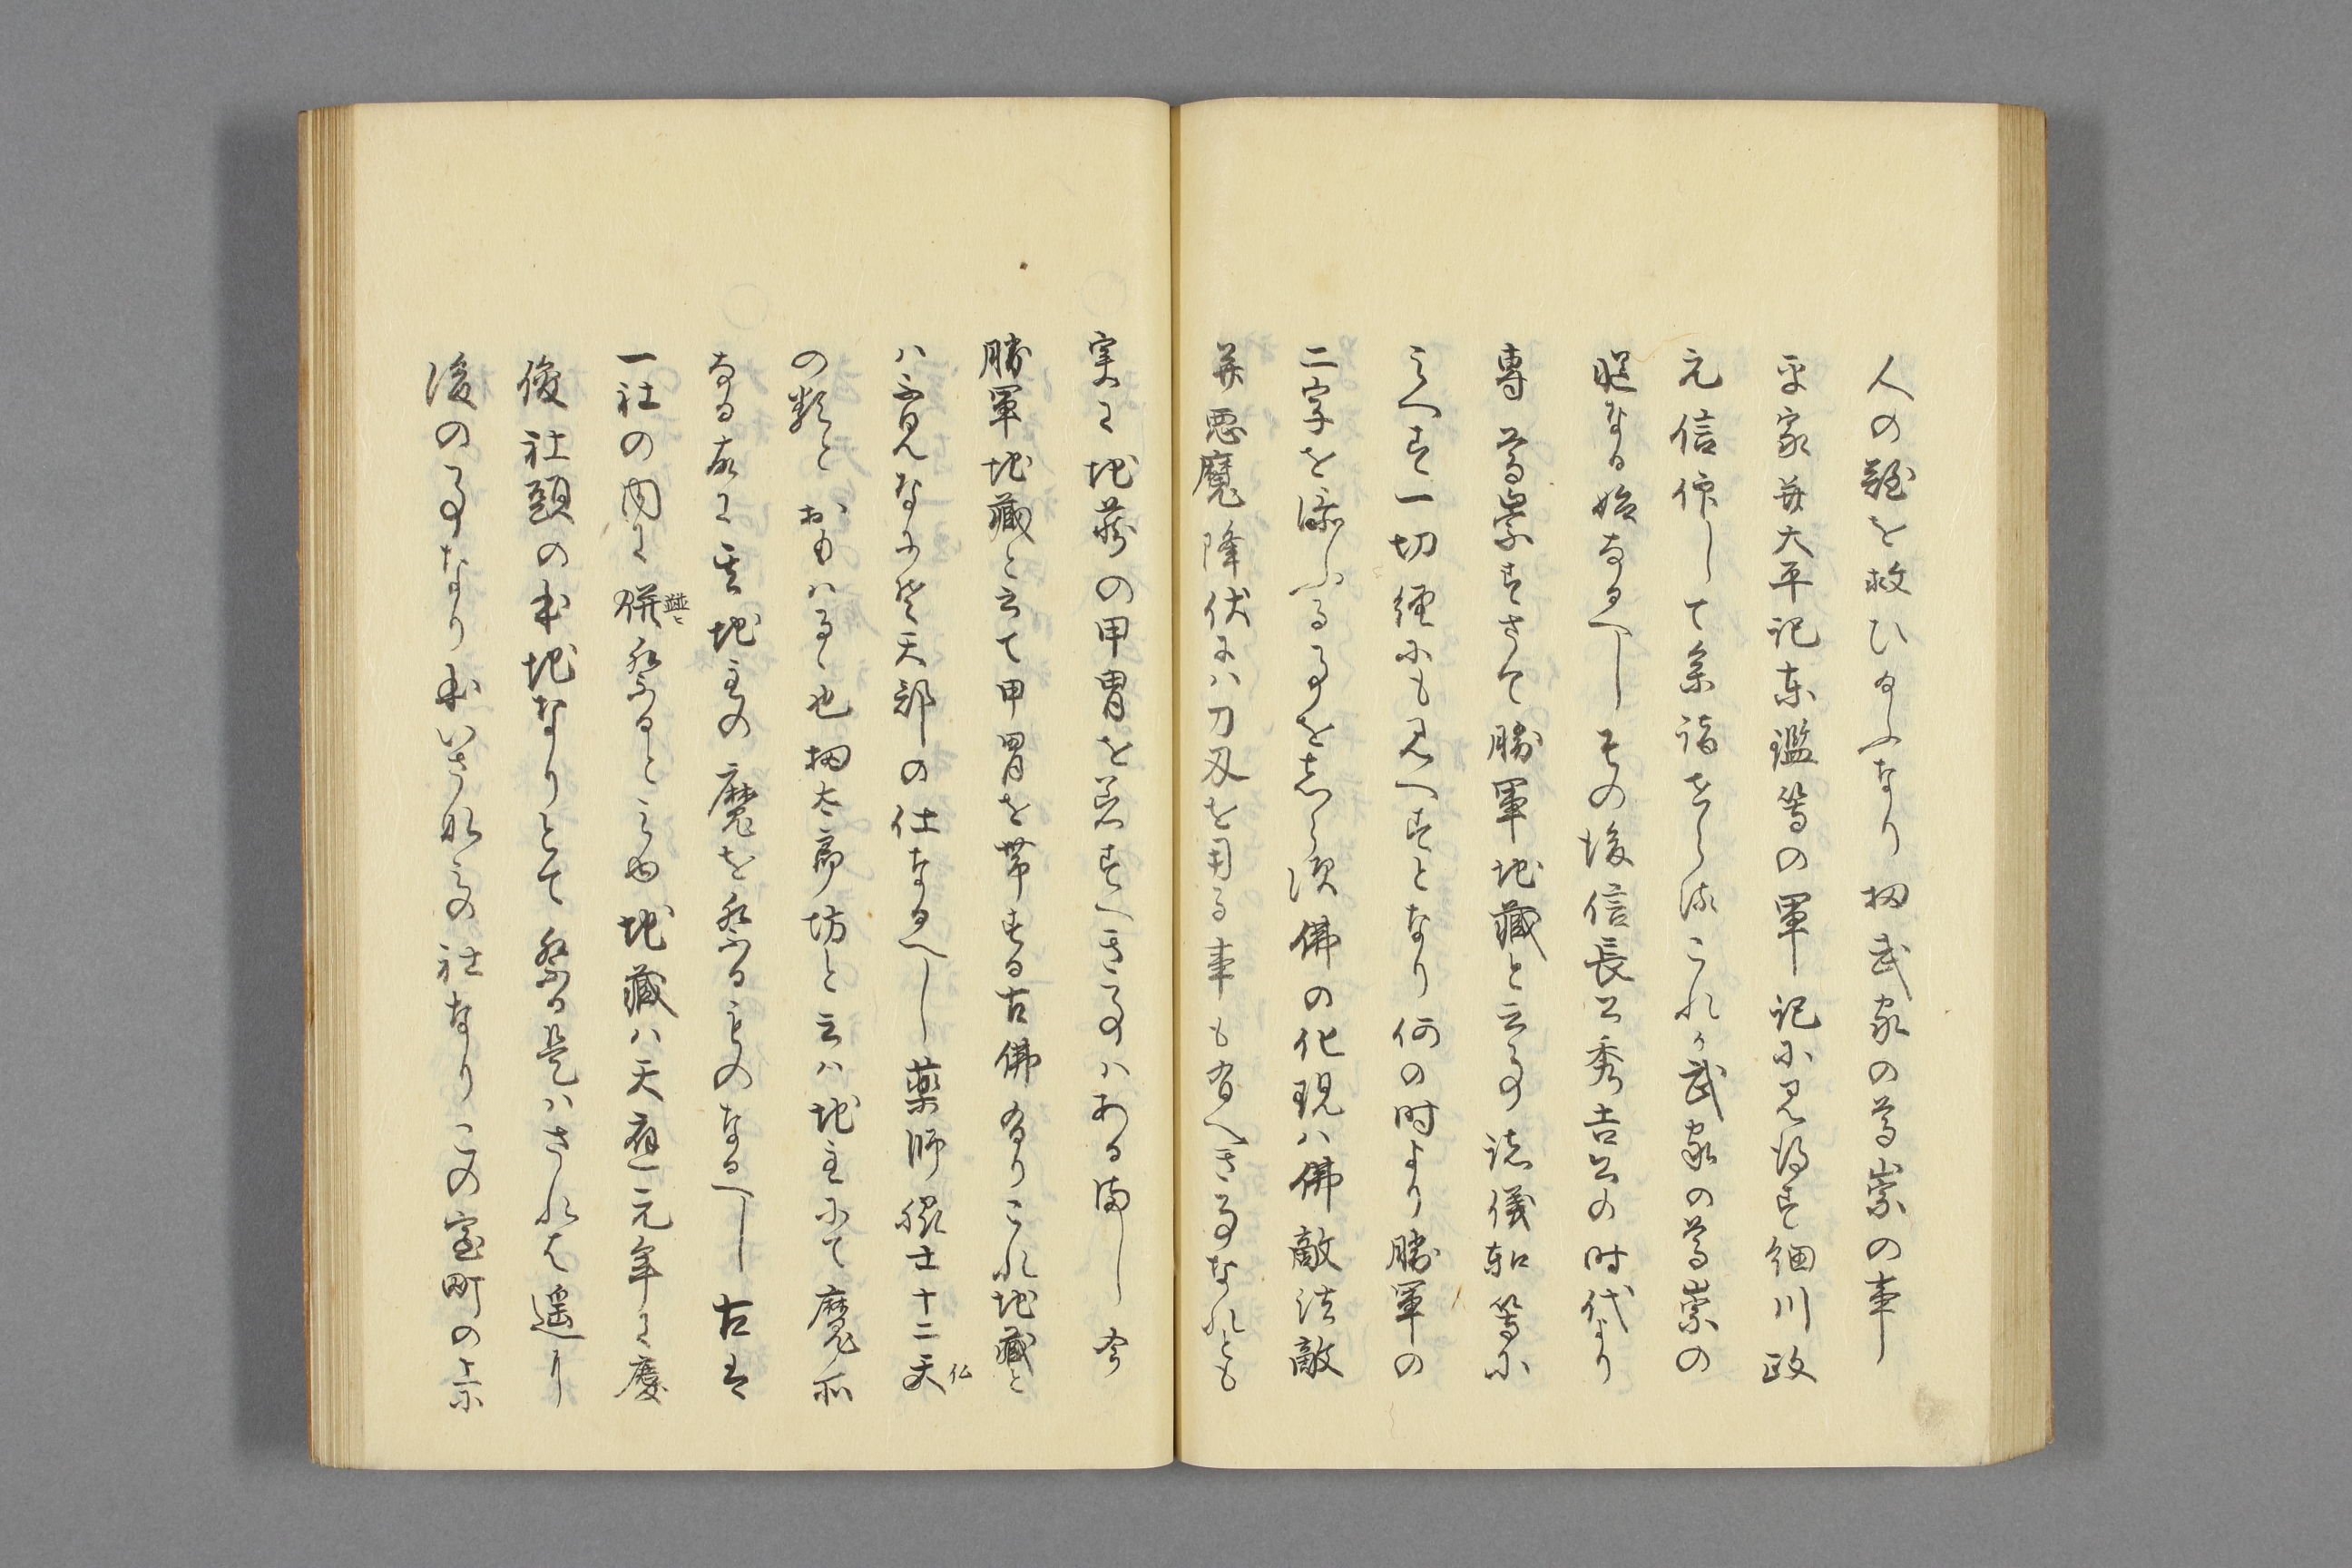 人の難を救ひ給ふなり扨武家の尊崇の事
平家并太平記東鑑等の軍記に見得す細川政
元信仰して参詣せられこれ武家の尊崇の
起なる始なるへしその後信長公秀吉公の時代より
専尊崇すさて勝軍地蔵と云事諸儀軌等に
みへす一切経にも見へすとなり何の時より勝軍の
二字を添ふる事をしらす佛の化現ハ佛敵法敵
并悪魔降伏にハ刀刃を用る事も有へき事なれとも
実に地蔵の甲冑を着すへき事ハある間し今
勝軍地蔵と云て甲冑を帯する古佛有りこれ地蔵と
ハ不見なに分天部の仕なるへし薬師眷士十二天
仏
の類とおもハるゝ也扨太郎坊と云ハ地主にて魔所
なる故に其地主の魔を祭るものなるへし古は
一社の内に併祭ると云也地蔵ハ天應元年に慶
並ヒ
俊社頭の本地なりとて祭る是ハされは遥に
後の事なり本いさ那みの社なりこの室町の末